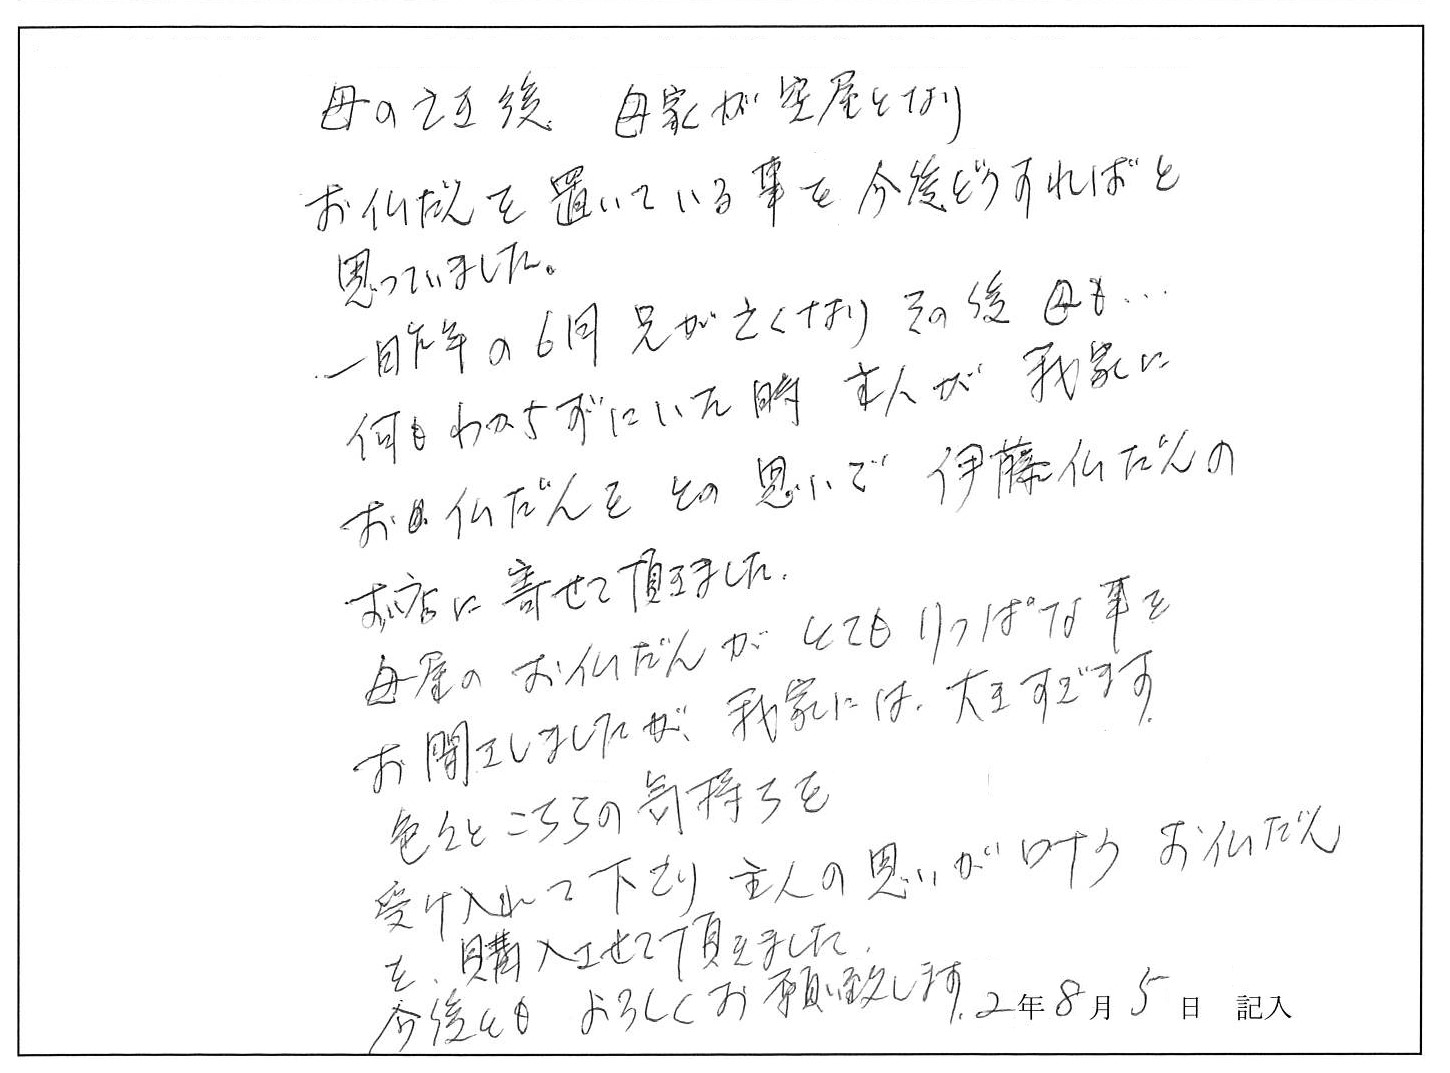 母の亡き後 母家が空屋となり
お仏だんを置いている事を今後どうすればと
思っていました。
一昨年の6月兄が亡くなりその後母も…
何もわからずにいた時 主人が 我家に
お仏だんをとの思いで 伊藤仏だんの
お店に寄せて頂きました.
母屋の お仏だんが とてもりっぱな事を
お聞きしましたが、我家には、大きすぎます.
色々と こちらの気持ちを
受け入れて下さり 主人の思いが叶う お仏だん
を、購入させて頂きました.
今後とも よろしくお願い致します. 2年8月5日 記入